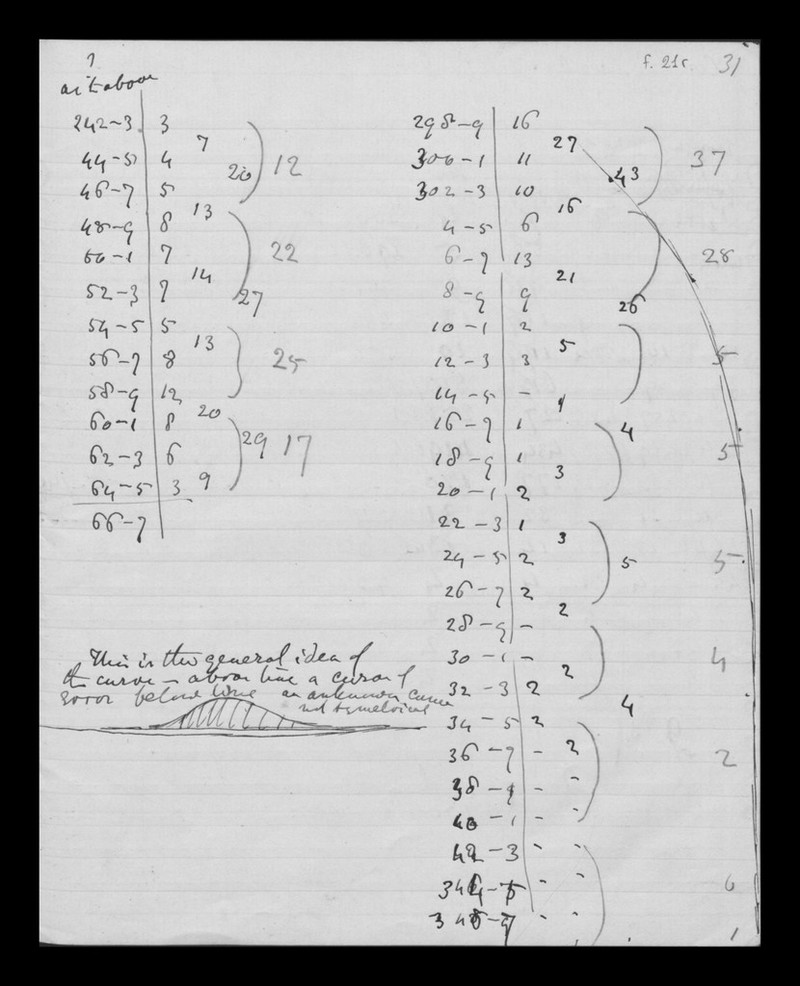 ?
as it above
f. 21r. 31
242-3 3
7
44-5 4
20 12
46-7 5
13
48-9 8
60-1 7
22
14
52-3 7
27
54-5 5
13
56-7 8
25
58-9 12
20
60-1 8
29 17
62-3 6
64-5 3 9
66-7
298-9 16
27
300-1 11
43 37
302-3 10
16
4-5 6
6-7 13
28
21
8-9 9
26
10-1 2
5
12-3 3
5
14-5 -
1
16-7 1
4
18-9 1
5
3
20-1 2
22-3 1
3
24-5 2
5 5
26-7 2
2
28-9 -
30-1 -
4
2
32-3 2
4
34-5 2
2
36-7 -
2
38-9 - -
40-1 - -
42-3 - -
344-5 - -
6
346-7 - -
1
This is the general idea of
the curve - above line a curve of
error below line an unknown curve
not symetrical